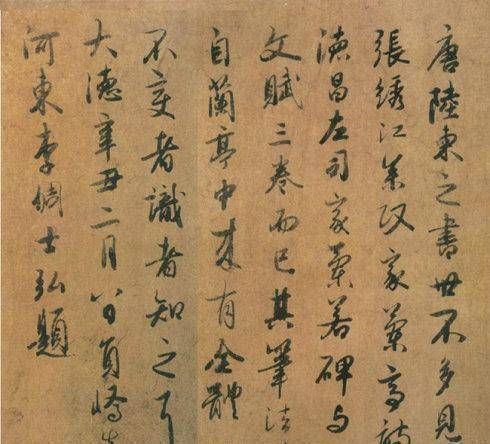 唐陸柬之書世不多見
張綉江參政家藏高
德昌左司家蘭若碑与
文賦三卷而已其筆法
自蘭亭中來有全體
不變者識者知之耳
大德辛丑二月八日員嶠
河東李倜士弘題